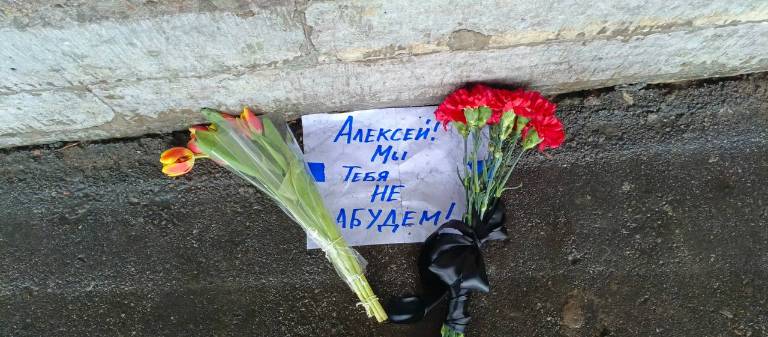 Алексей!
Мы
Тебя
НЕ
АБУДЕМ!